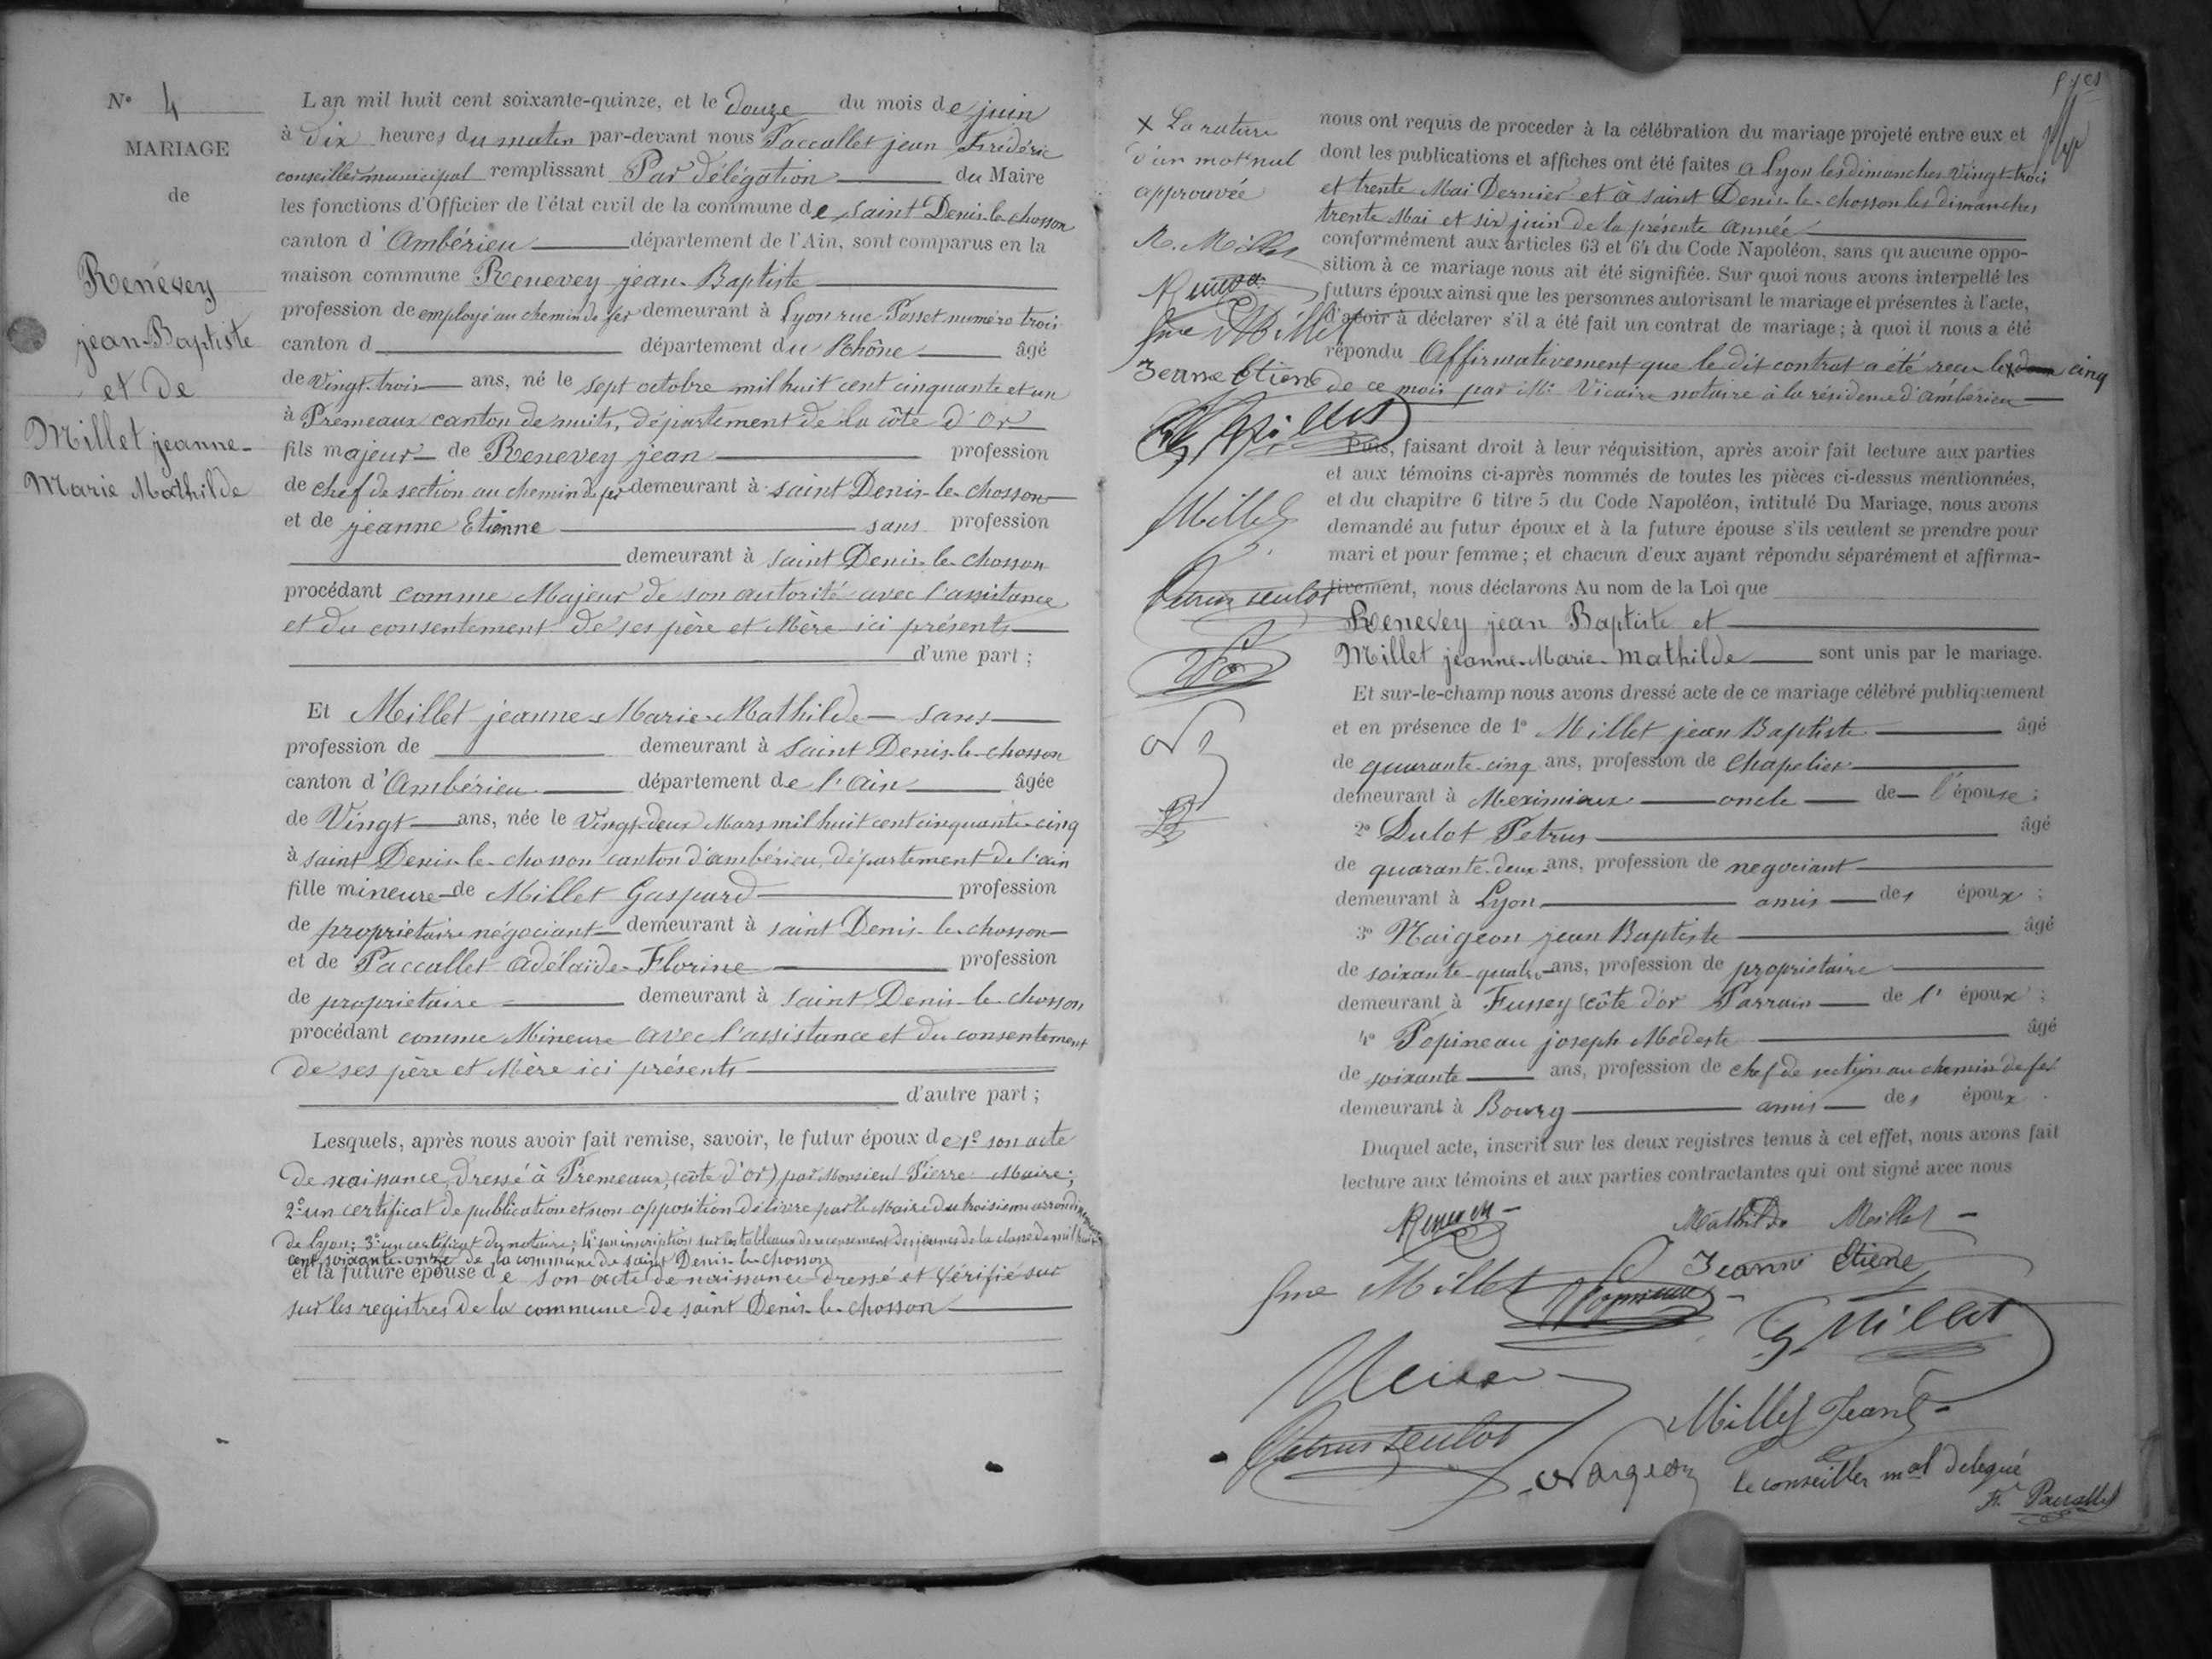 N° 4
MARIAGE
de
Renevey
jean-Baptiste
et de
Millet jeanne-
Marie Mathilde
L'an mil huit cent soixante-quinze, et le douze du mois de juin
à dix heures du matin par-devant nous Paccallet jean Frédéric
conseiller municipal remplissant Par délégation du Maire
les fonctions d'Officier de l'état civil de la commune de saint Denis-le-chosson
canton d'Ambérieu département de l'Ain, sont comparus en la
maison commune Renevey jean-Baptiste
profession de employé au chemin de fer demeurant à Lyon rue Posset numéro trois
canton d département du Rhône âgé
de vingt-trois ans, né le sept octobre mil huit cent cinquante et un
à Premeaux canton de nuits, département de la côte d'Or
fils majeur de Renevey jean profession
de chef de section au chemin de fer demeurant à saint Denis-le-chosson
et de jeanne Etienne sans profession
demeurant à saint Denis-le-chosson
procédant comme Majeur de son autorité avec l'assistance
et du consentement de ses père et Mère ici présents
d'une part ;
Et Millet jeanne-Marie-Mathilde sans
profession de demeurant à saint Denis-le-chosson
canton d'Ambérieu département de l'ain âgée
de Vingt ans, née le Vingt-deux Mars mil huit cent cinquante-cinq
à saint Denis-le-chosson canton d'ambérieu, département de l'ain
fille mineure de Millet Gaspard profession
de propriétaire négociant demeurant à saint Denis-le-chosson
et de Paccallet Adélaïde-Florine profession
de propriétaire demeurant à saint Denis-le-chosson
procédant comme Mineure avec l'assistance et du consentement
de ses père et Mère ici présents
d'autre part ;
Lesquels, après nous avoir fait remise, savoir, le futur époux de 1° son acte
de naissance, dressé à Premeaux, (côte d'or) par Monsieur Pierre Maire ;
2° un certificat de publication et non opposition délivré par le Maire du troisième arrondissement
de Lyon ; 3° un certificat du notaire ; 4° son inscription sur les tableaux de recensement des jeunes de la classe de mil huit
cent soixante-onze de la commune de saint Denis-le-chosson
et la future épouse de son acte de naissance dressé et vérifié sur
sur les registres de la commune de saint Denis-le-chosson
x La rature
d'un mot nul
approuvée
M. Millet
Jeanne Etiene
Millet
nous ont requis de proceder à la célébration du mariage projeté entre eux et
dont les publications et affiches ont été faites a Lyon les dimanches Vingt-trois
et trente Mai Dernier et à saint Denis-le-chosson les dimanches
trente Mai et six juin de la présente année
conformément aux articles 63 et 64 du Code Napoléon, sans qu'aucune oppo-
sition à ce mariage nous ait été signifiée. Sur quoi nous avons interpellé les
futurs époux ainsi que les personnes autorisant le mariage et présentes à l'acte,
d'avoir à déclarer s'il a été fait un contrat de mariage ; à quoi il nous a été
répondu Affirmativement que le dit contrat a été reçu le x cinq
de ce mois par Me Vicaire notaire à la résidence d'ambérieu
Puis, faisant droit à leur réquisition, après avoir fait lecture aux parties
et aux témoins ci-après nommés de toutes les pièces ci-dessus mentionnées,
et du chapitre 6 titre 5 du Code Napoléon, intitulé Du Mariage, nous avons
demandé au futur époux et à la future épouse s'ils veulent se prendre pour
mari et pour femme ; et chacun d'eux ayant répondu séparément et affirma-
tivement, nous déclarons Au nom de la Loi que
Renevey jean Baptiste et
Millet jeanne-Marie-Mathilde sont unis par le mariage.
Et sur-le-champ nous avons dressé acte de ce mariage célébré publiquement
et en présence de 1° Millet jean Baptiste âgé
de quarante-cinq ans, profession de chapelier
demeurant à Meximieux oncle de l'épouse ;
2° Dulot Petrus âgé
de quarante-deux ans, profession de negociant
demeurant à Lyon amis des époux ;
3° Naigeon jean Baptiste âgé
de soixante-quatre ans, profession de propriétaire
demeurant à Fussey (côte d'or Parrain de l'époux ;
4° Popineau joseph Modeste âgé
de soixante ans, profession de chef de section au chemin de fer
demeurant à Bourg amis des époux.
Duquel acte, inscrit sur les deux registres tenus à cet effet, nous avons fait
lecture aux témoins et aux parties contractantes qui ont signé avec nous
Mathilde Millet
Jeanne Etiene
fme Millet
G Millet
Millet Jean
Le conseiller mal délégué
Fc Paccallet